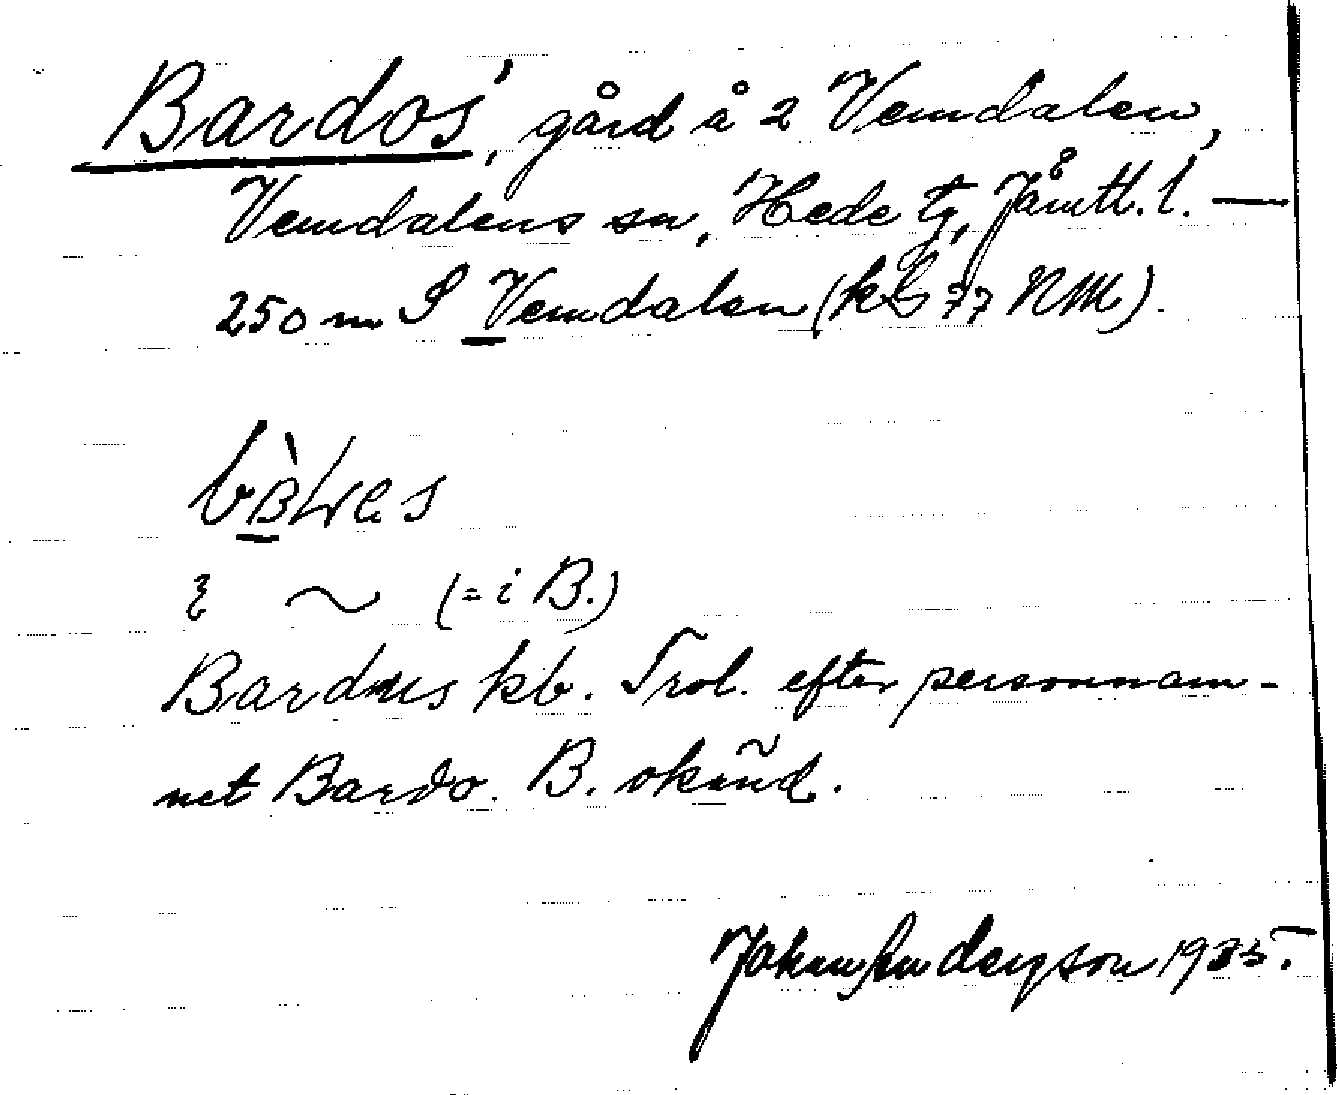 Bardos', gård å 2 Vemdalen,
Vemdalens sn, Hede tg, Jämtl. l. —
250 m S Vemdalen (kb 77 NM).
(= i B.)
Bardus kb. Trol. efter personnam-
net Bardo. B. okänd.
Johan Anderson 1935.